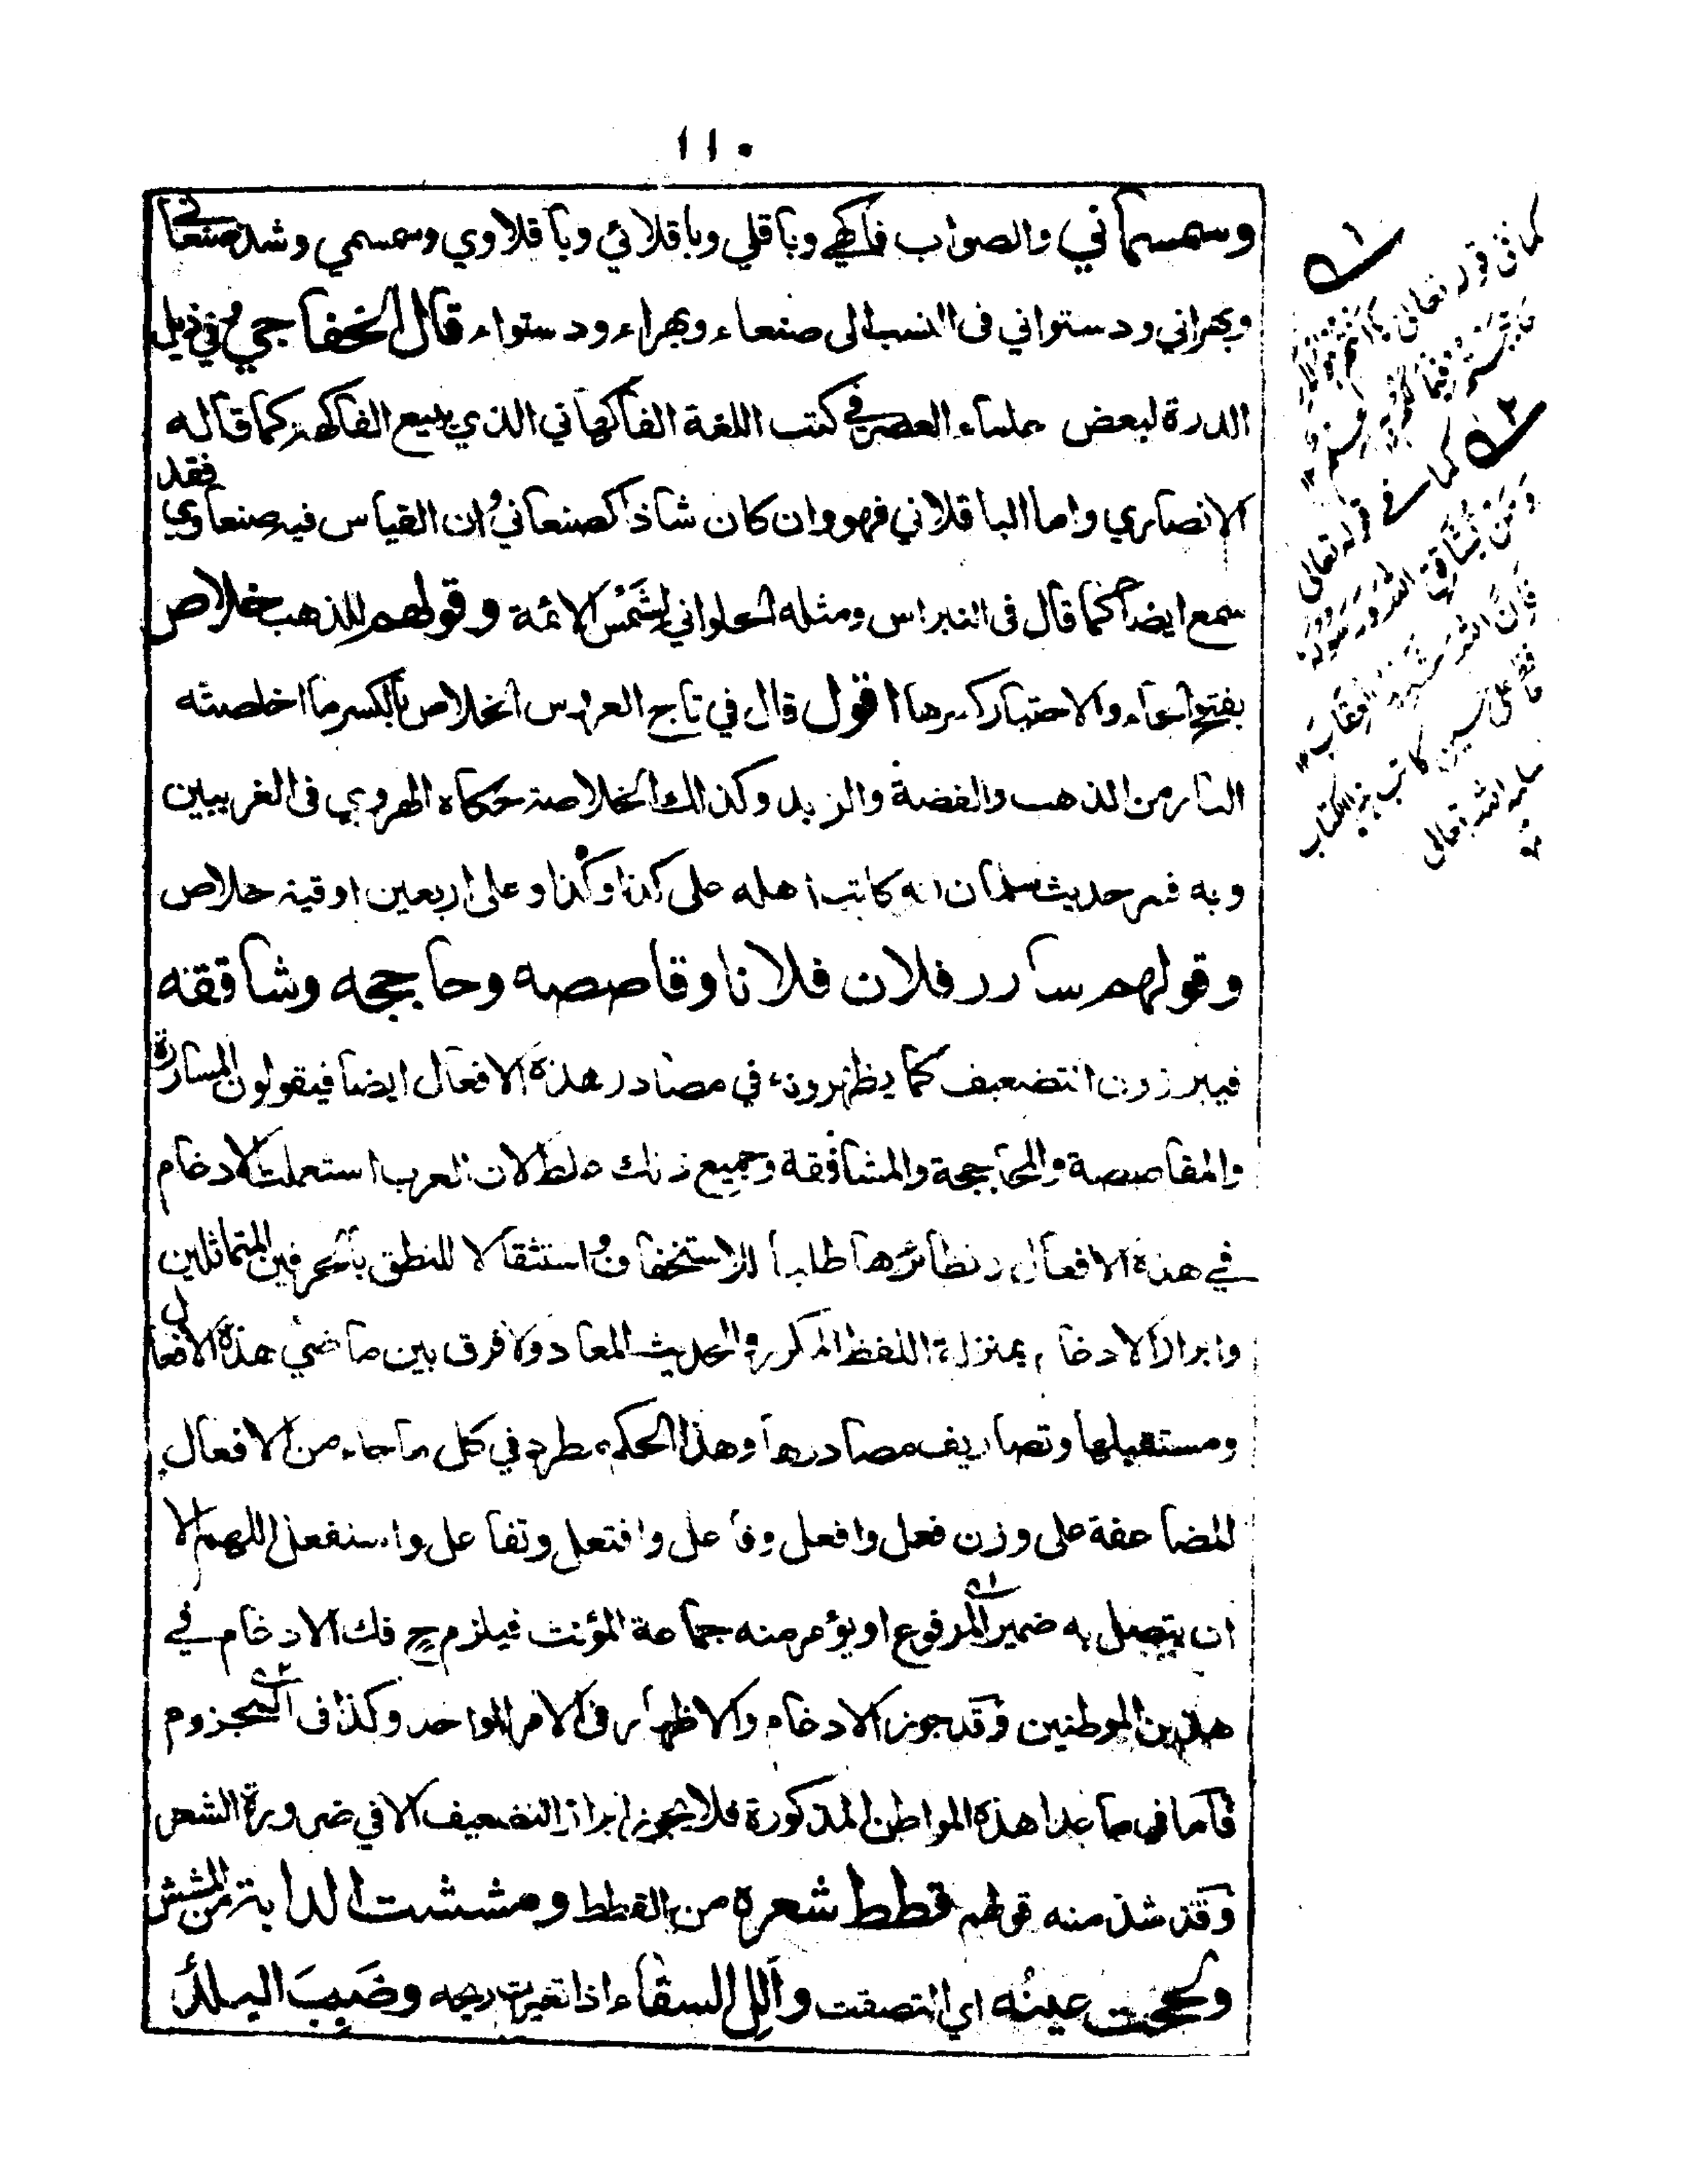 ١١٠
وسمسماني والصواب فاكهي وباقلي وباقلائي وباقلاوي وسمسمي وشذ صنعاني
وبهراني ودستواني فى النسب الى صنعاء وبهراء ودستواء قال الخفاجي في ذيل
الدرة لبعض علماء العصر في كتب اللغة الفاكهاني الذي يبيع الفاكهة كما قاله
الانصاري واما الباقلاني فهو وان كان شاذا كصنعاني وان القياس فيه صنعاوي فقد
سمع ايضا كما قال فى النبراس ومثله الحلواني لشَمْس الائمة وقولهم للذهب خلاص
بفتح الخاء والاختيار كسرها اقول قال في تاج العروس الخلاص بالكسر ما اخلصته
النار من الذهب والفضة والزبد وكذلك الخلاصة حكاه الهروي فى الغريبين
وبه فسر حديث سلمان انه كاتب اهله على كذا وكذا وعلى اربعين اوقية خلاص
وقولهم سارر فلان فلانا وقاصصه وحاججه وشاققه
فيبرزون التضعيف كما يظهرونه في مصادر هذه الافعال ايضا فيقولون المساررة
والمقاصصة والمحاججة والمشاققة وجميع ذلك غلط لان العرب استعملت الادغام
في هذه الافعال ونظائرها طلبا للاستخفاف واستثقالا للنطق بالحرفين المتماثلين
وابراز الادغام بمنزلة اللفظ المكرر والحديث المعاد ولا فرق بين ماضي هذه الافعال
ومستقبلها وتصاريف مصادرها وهذا الحكم مطرد في كل ما جاء من الافعال
المضاعفة على وزن فعل وافعل وفاعل وافتعل وتفاعل واستفعل اللهم الا
ان يتصل به ضمير المرفوع او يؤمر منه جماعة المؤنث فيلزم ح فك الادغام في
هذين الموطنين وقد جوز الادغام والاظهار فى الامر للواحد وكذا فى المجزوم
فاما فى ما عدا هذه المواطن المذكورة فلا يجوز ابراز التضعيف الا في ضرورة الشعر
وقد شذ منه قولهم قطط شعره من القطط ومششت الدابة من المشش
ولححت عينُه اي التصقت وأَلِل السقاء اذا تغيرت ريحه وضَبِبَ البلدُ
١
كما فى قوله تعالى
٢
كما في قوله تعالى
وَمَن يُشَاقِقِ الله وَرَسُولَهُ
فَإِنَّ اللهَ شَدِيدُ العِقَابِ
كاتب هذا الكتاب
سلمه الله تعالى